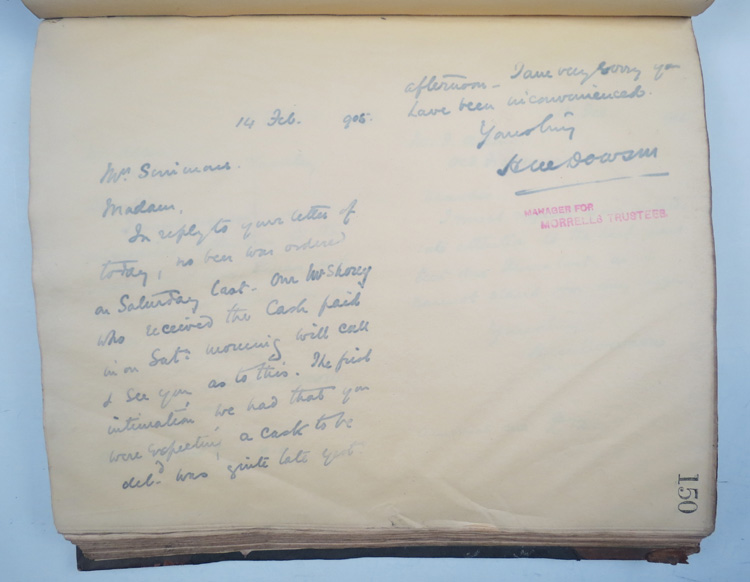 14 Feb. 905.
Mrs. Simmons.
Madam,
In reply to your letter of
today, no beer was ordered
on Saturday last. Our Mr Shorey
who received the Cash paid
in on Sat. morning will call
& see you as to this. The first
intimation we had that you
were expecting a cask to be
deld. was quite late yest.
afternoon - I am very sorry you
have been inconvenienced.
Yours truly
Dowson
MANAGER FOR
MORRELLS TRUSTEES.
150